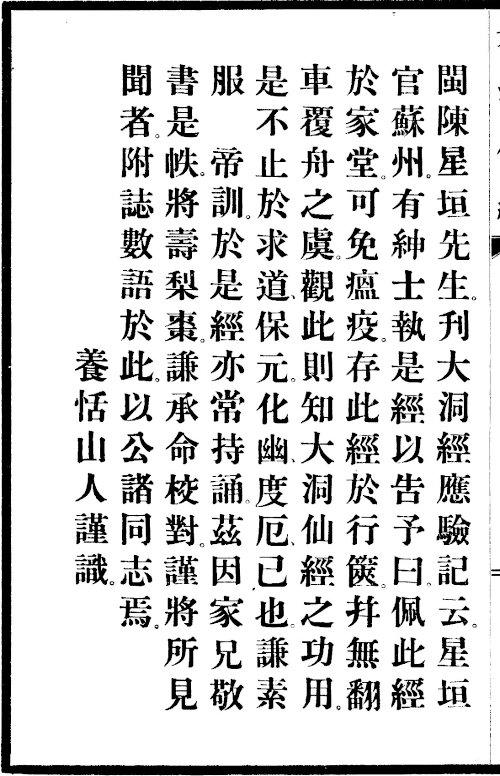 閩陳星垣先生。刊大洞經應驗記云。星垣
官蘇州。有紳士執是經以告予曰。佩此經
於家堂。可免瘟疫。存此經於行篋。幷無翻
車覆舟之虞。觀此則知大洞仙經之功用。
是不止於求道、保元。化幽、度厄。已也。謙素
服　帝訓。於是經亦常持誦。茲因家兄敬
書是帙。將壽梨棗。謙承命校對。謹將所見
聞者。附誌數語於此。以公諸同志焉。
養恬山人謹識。